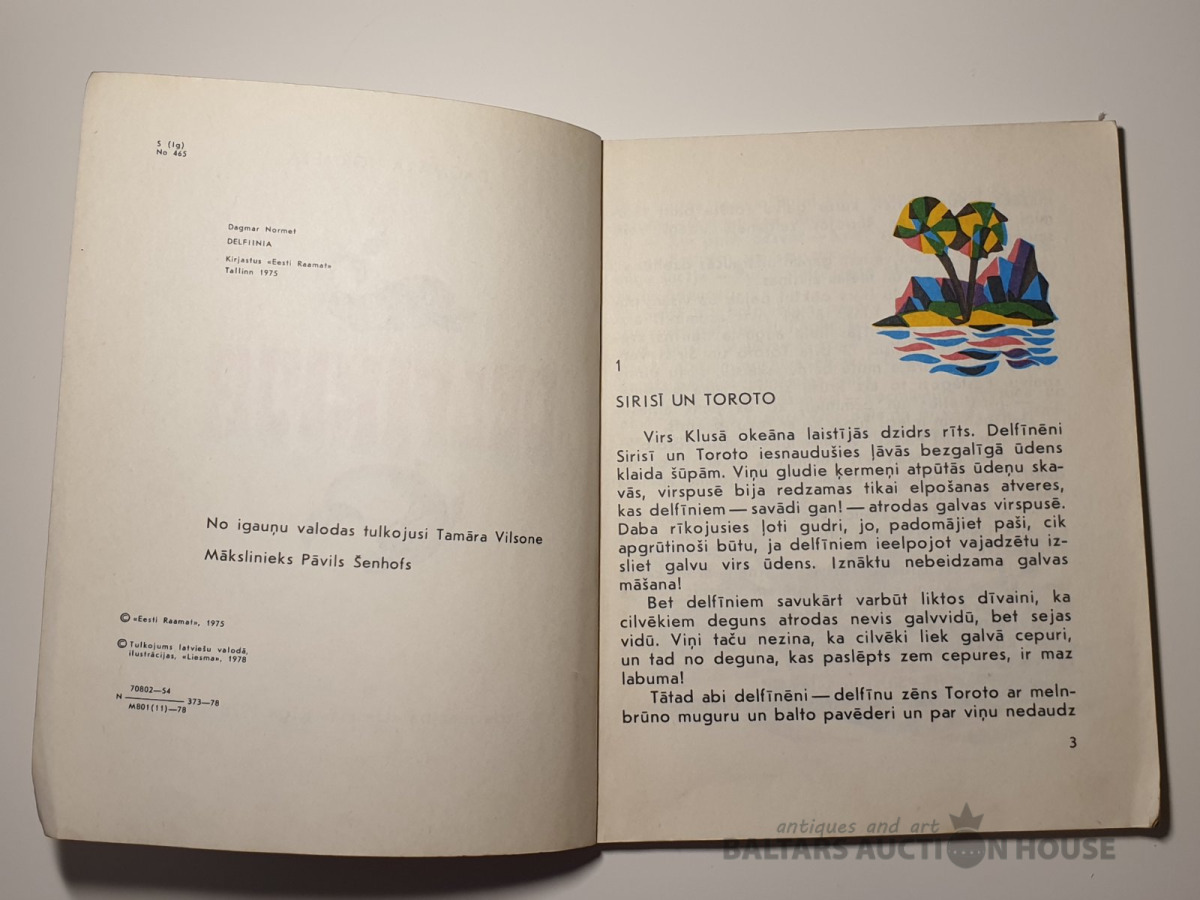 S (Ig)
No 465
Dagmar Normet
DELFIINIA
Kirjastus «Eesti Raamat»
Tallinn 1975
No igauņu valodas tulkojusi Tamāra Vilsone
Mākslinieks Pāvils Šenhofs
© «Eesti Raamat», 1975
© Tulkojums latviešu valodā,
ilustrācijas, «Liesma», 1978
70802—54
N ——— 373—78
M801(11)—78
1
SIRISĪ UN TOROTO
Virs Klusā okeāna laistījās dzidrs rīts. Delfīnēni
Sirisī un Toroto iesnaudušies ļāvās bezgalīgā ūdens
klaida šūpām. Viņu gludie ķermeņi atpūtās ūdeņu ska-
vās, virspusē bija redzamas tikai elpošanas atveres,
kas delfīniem — savādi gan! — atrodas galvas virspusē.
Daba rīkojusies ļoti gudri, jo, padomājiet paši, cik
apgrūtinoši būtu, ja delfīniem ieelpojot vajadzētu iz-
sliet galvu virs ūdens. Iznāktu nebeidzama galvas
māšana!
Bet delfīniem savukārt varbūt liktos dīvaini, ka
cilvēkiem deguns atrodas nevis galvvidū, bet sejas
vidū. Viņi taču nezina, ka cilvēki liek galvā cepuri,
un tad no deguna, kas paslēpts zem cepures, ir maz
labuma!
Tātad abi delfīnēni — delfīnu zēns Toroto ar meln-
brūno muguru un balto pavēderi un par viņu nedaudz
3
antiques and art
BALTARS AUCTION HOUSE